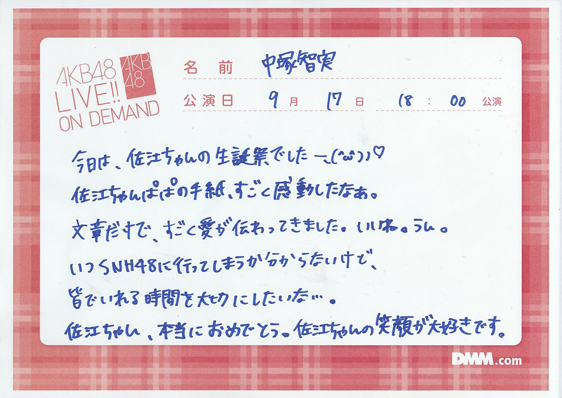 AKB48
LIVE!!
ON DEMAND
AKB
48
名前 中塚智実
公演日 9月 17日 18:00 公演
今日は、佐江ちゃんの生誕祭でしたー(^ω^)♡
佐江ちゃんぱぱの手紙、すごく感動したなぁ。
文章だけで、すごく愛が伝わってきました。いいね。うん。
いつSNH48に行ってしまうか分からないけど、
皆でいれる時間を大切にしたいな…。
佐江ちゃん、本当におめでとう。佐江ちゃんの笑顔が大好きです。
DMM.com